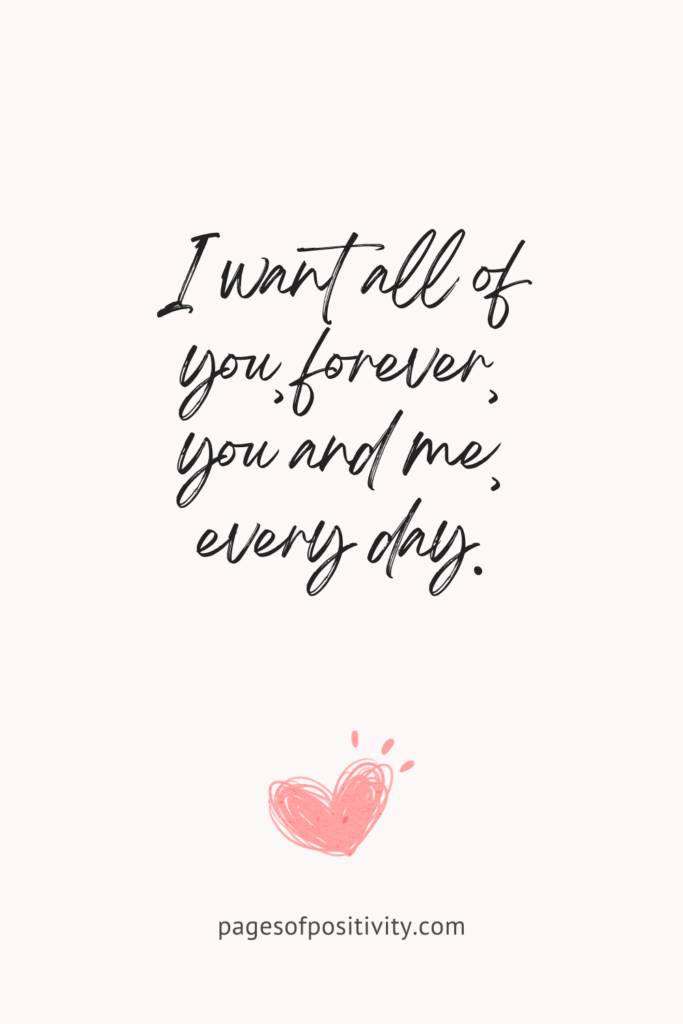 I want all of
you, forever,
you and me,
every day.
pagesofpositivity.com